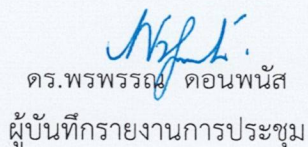 ดร.พรพรรณ ดอนพนัส
ผู้บันทึกรายงานการประชุม